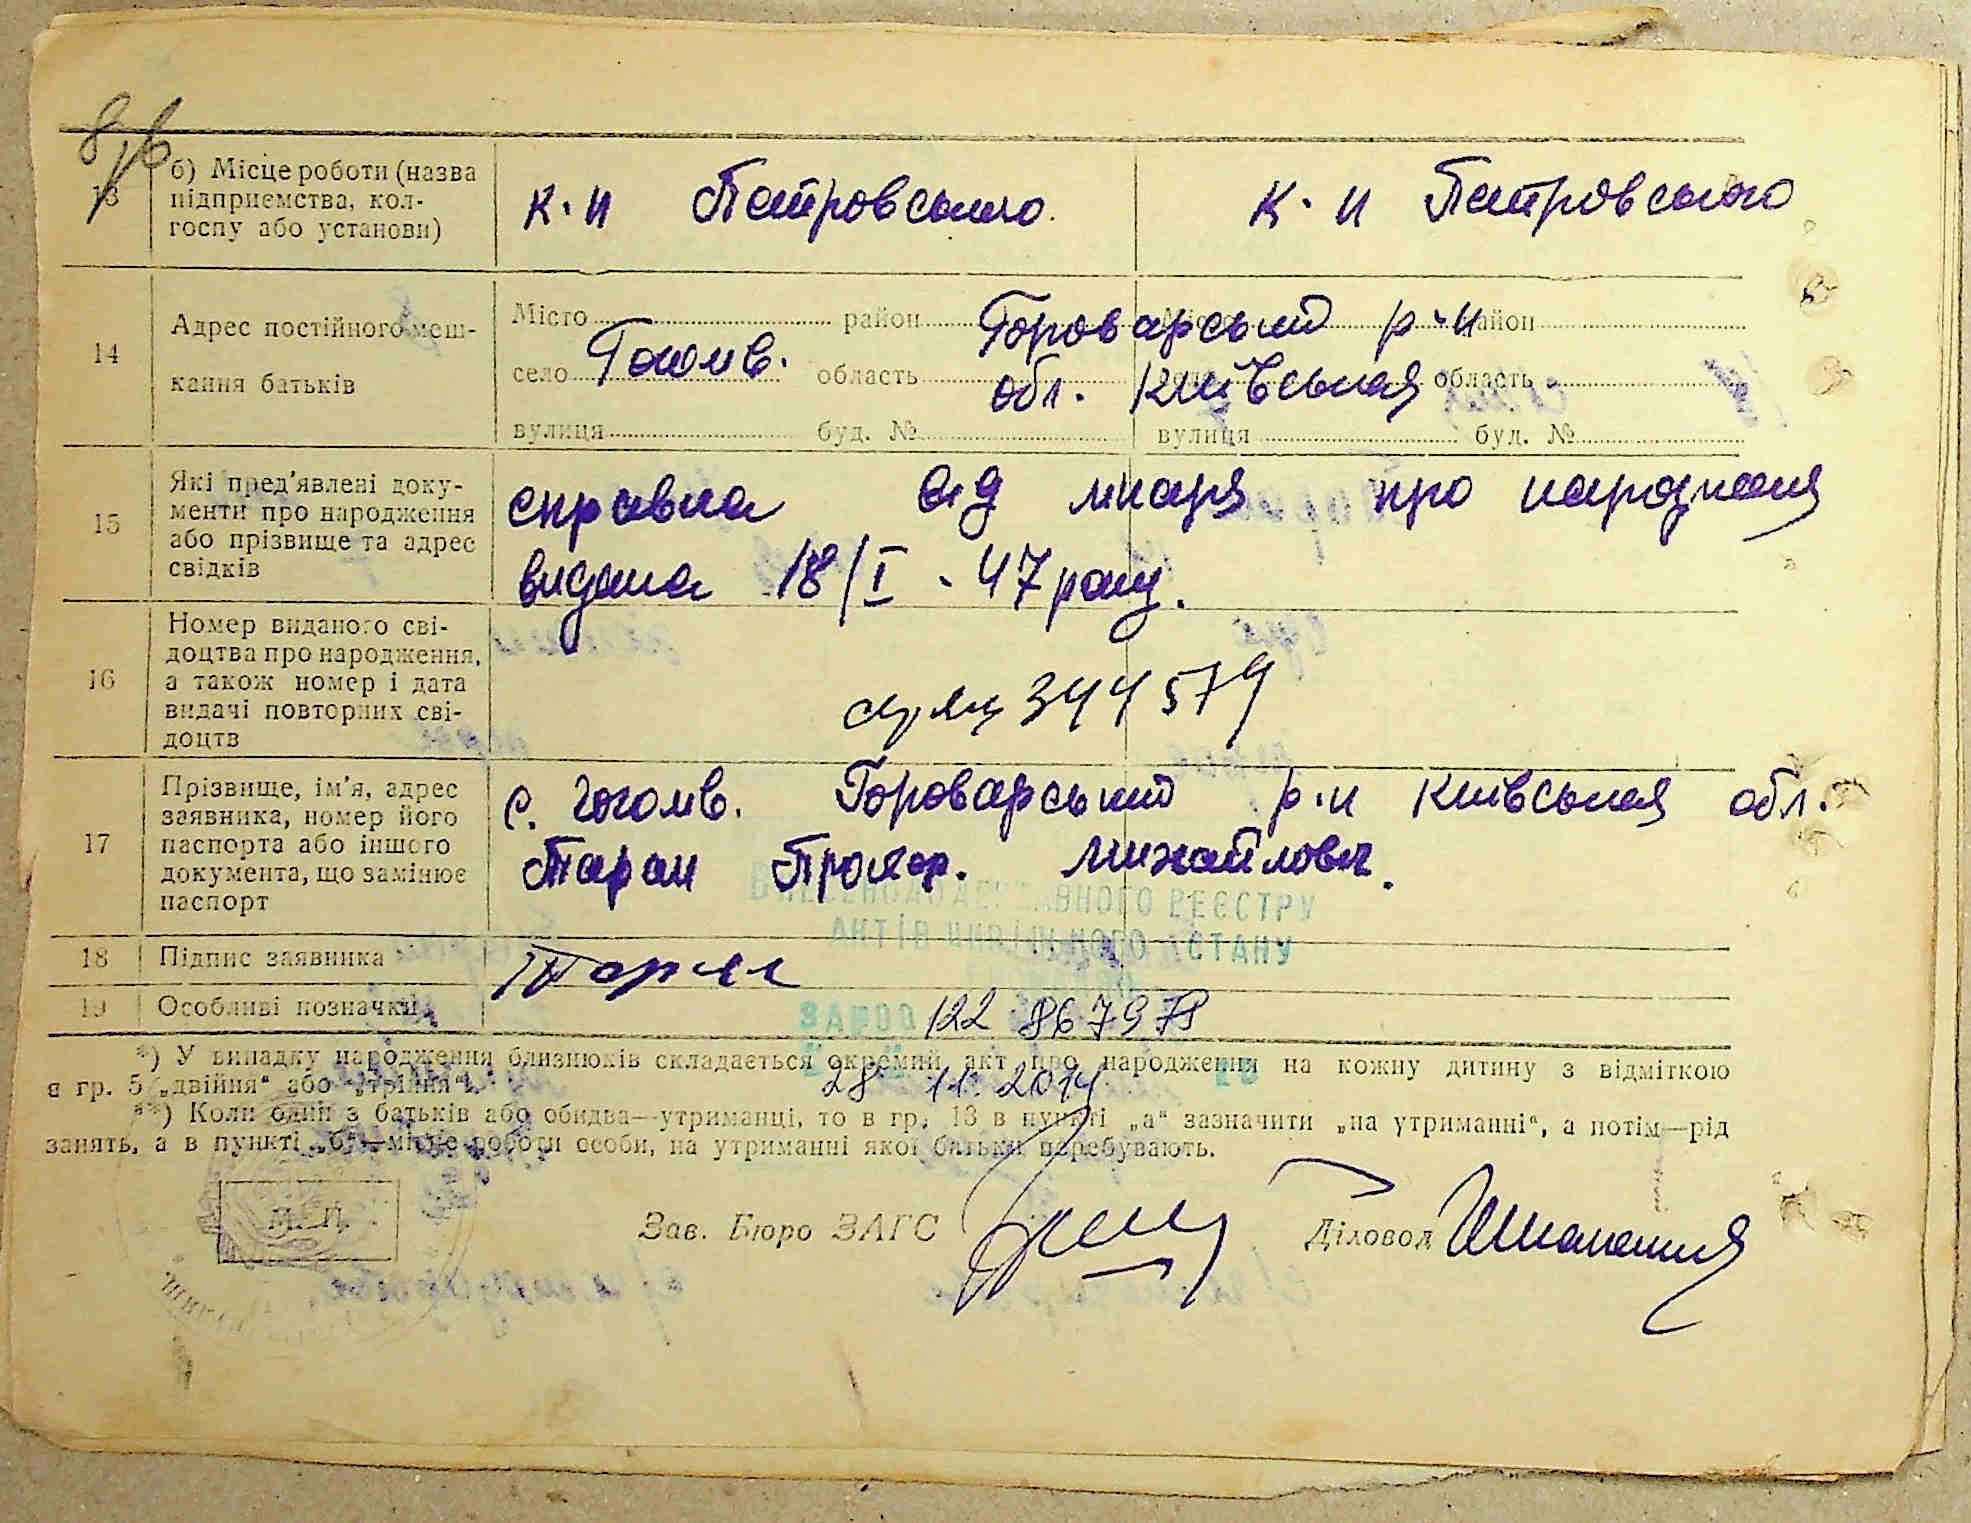 8/в
13 б) Місце роботи (назва підприємства, колгоспу або установи) к-п Петровського. к-п Петровського
14 Адрес постійного мешкання батьків
Місто район Броварський р-н Місто район
село Гоголів. область обл. Київська село область
вулиця буд. № вулиця буд. №
15 Які пред'явлені документи про народження або прізвище та адрес свідків
справка від лікаря про народження
видана 18/I - 47 року.
16 Номер виданого свідоцтва про народження, а також номер і дата видачі повторних свідоцтв
344579
17 Прізвище, ім'я, адрес заявника, номер його паспорта або іншого документа, що замінює паспорт
с. Гоголів. Броварський р-н Київська обл.
Таран Михайлович.
ВНЕСЕНО ДО ДЕРЖАВНОГО РЕЄСТРУ
АКТІВ ЦИВІЛЬНОГО СТАНУ
18 Підпис заявника Таран
19 Особливі позначки
ЗА № 00 122 867978
28 11. 2014
*) У випадку народження близнюків складається окремий акт про народження на кожну дитину з відміткою
в гр. 5 „двійня“ або „трійня“.
**) Коли один з батьків або обидва—утриманці, то в гр. 13 в пункті „а“ зазначити „на утриманні“, а потім—рід
занять, а в пункті „б“—місце роботи особи, на утриманні якої батьки перебувають.
М. П.
Зав. Бюро ЗАГС
Діловод